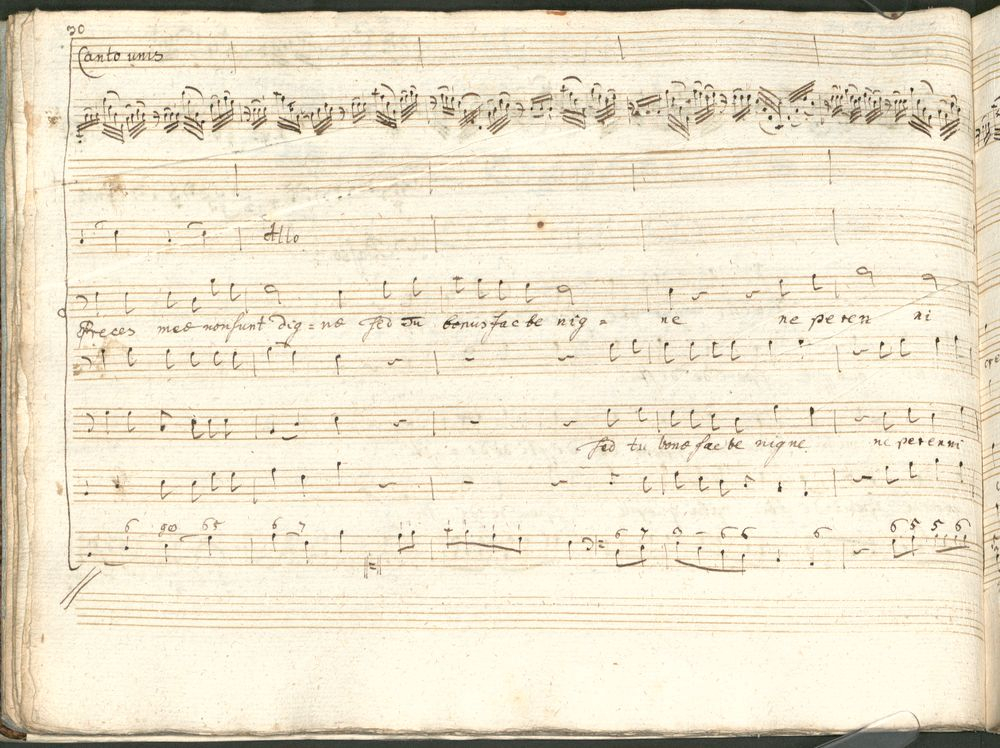 30
Canto unis
Allo
Preces meæ non sunt dig=næ sed Tu bonus fac be nig = ne ne peren ni
sed tu bonæ fac be nigne ne perenni
6 6 5 6 7 6 7 6 6 6 6 5 5 6